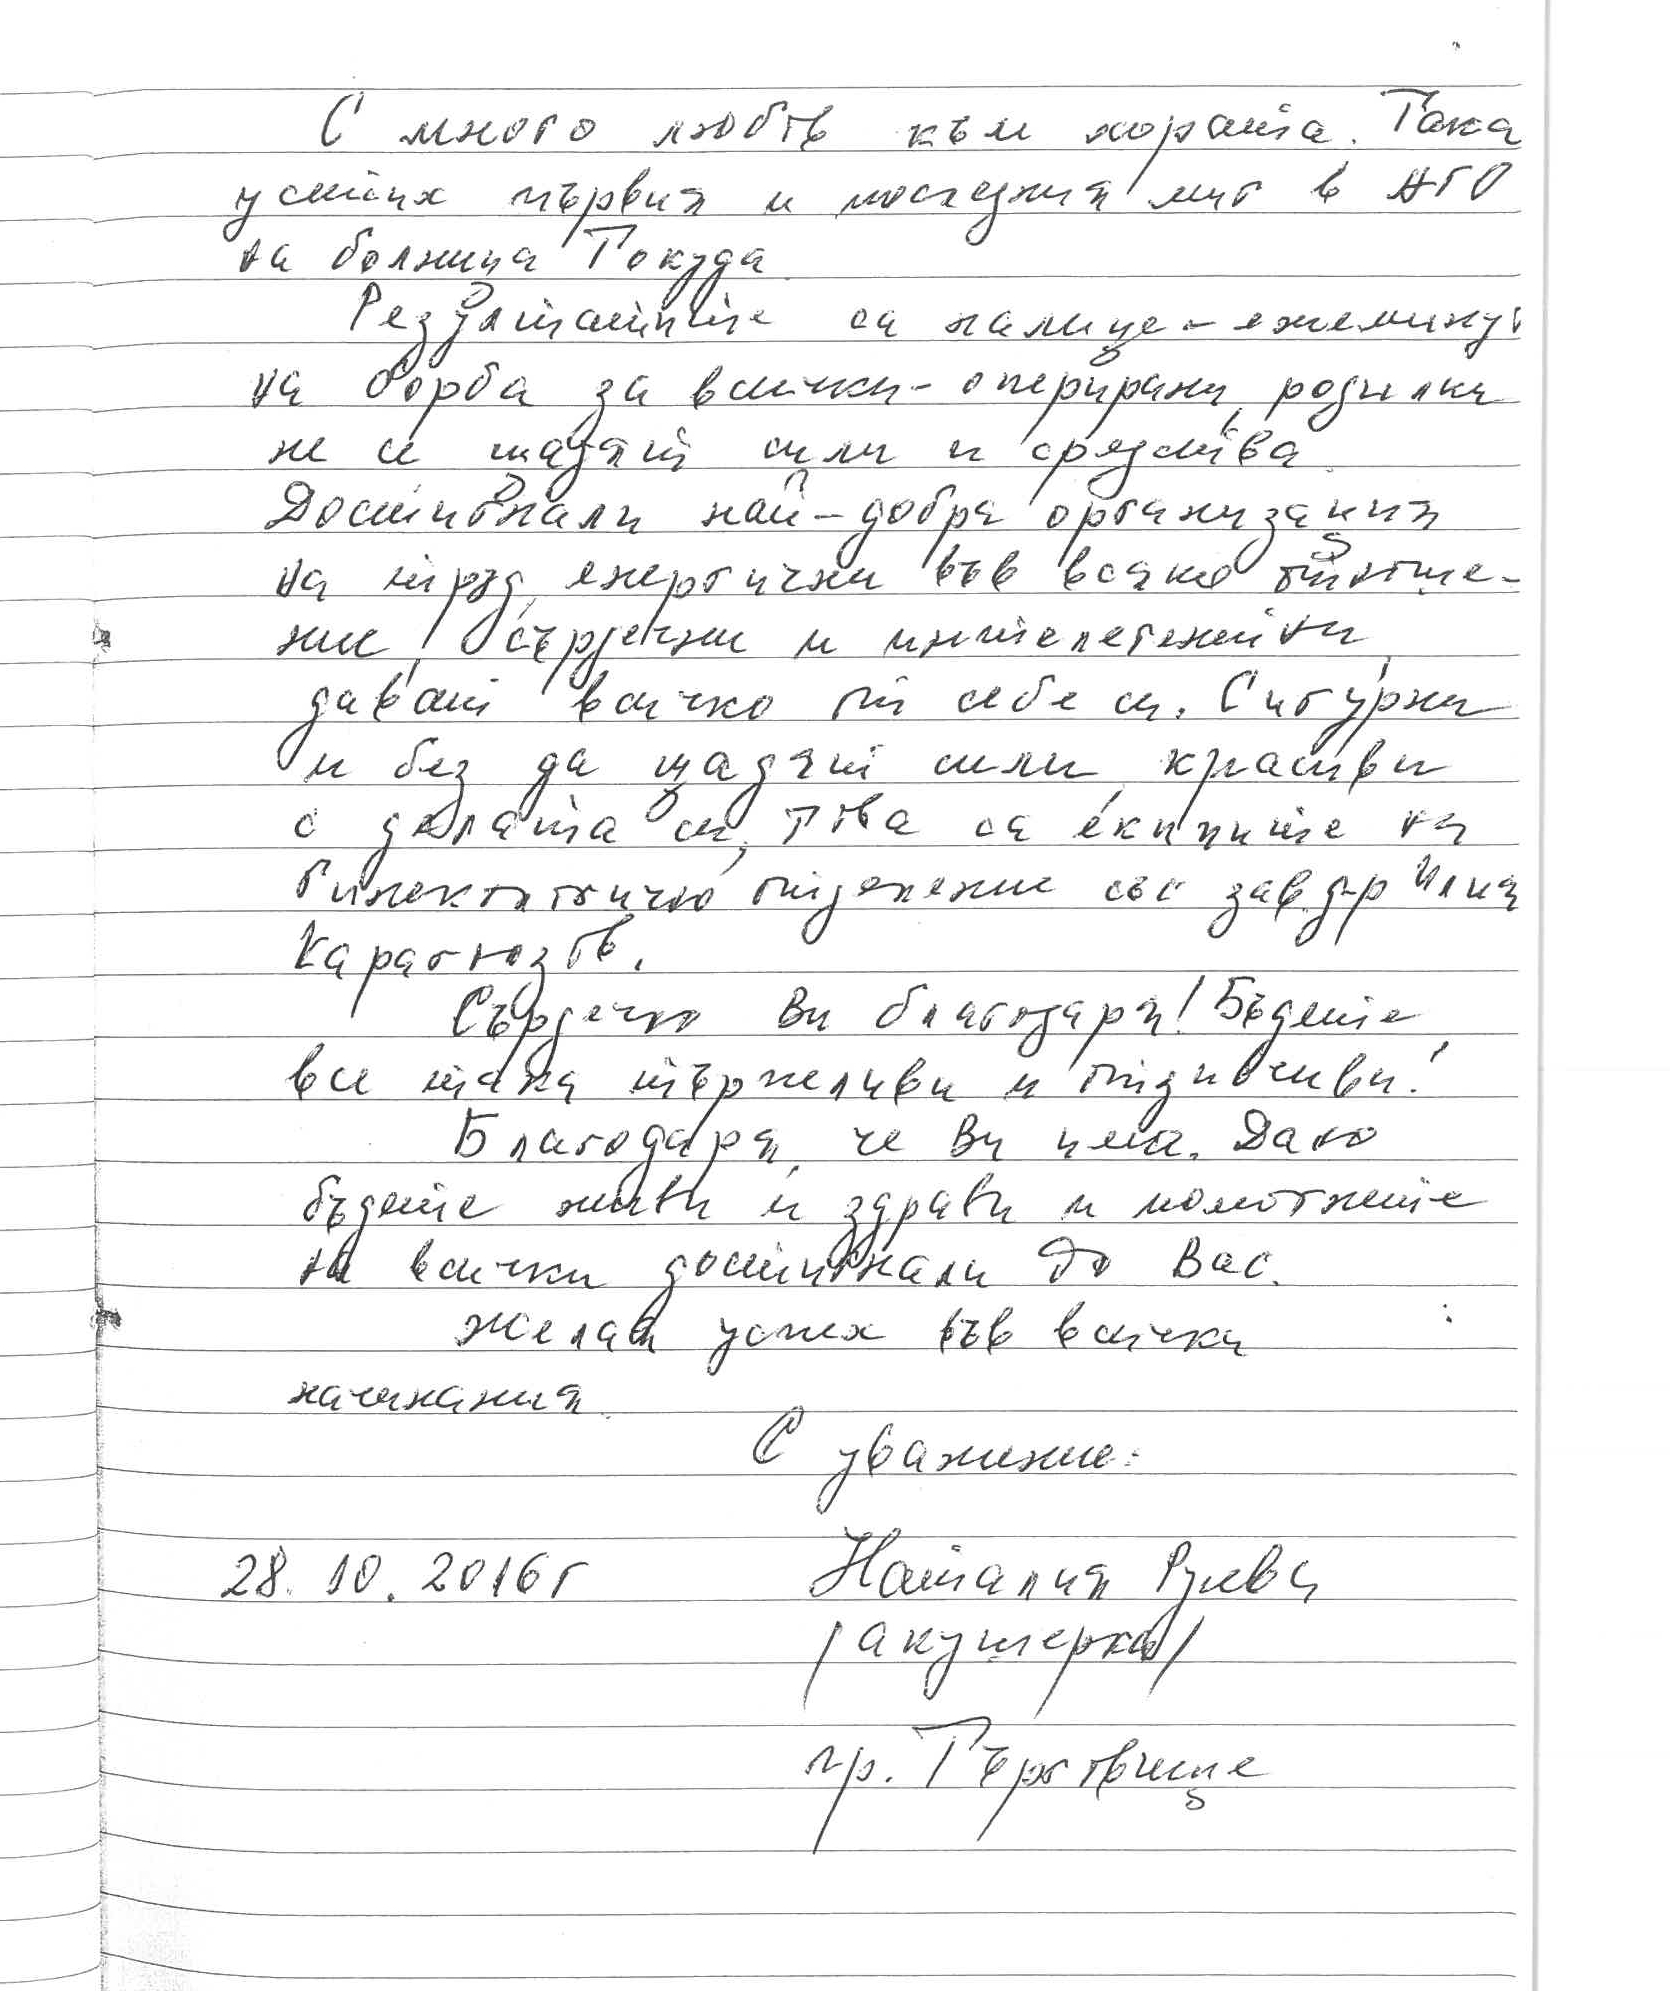 С много любов към хората. Така
усетих първия и последния миг в АГО
на болница Токуда
Резултатите са налице - ежемину
на борба за всички - оперирани, родилки
не се щадят сили и средства.
Достигнали най-добра организация
на труд, енергични във всяко отноше-
ние, сърдечни и интелегентни,
дават всичко от себе си. Сигурни
и без да щадят сили, красиви
с делата си, това са екипите на
Гинекологично отделение със зав. д-р Илия
Карагюзов.
Сърдечно Ви благодаря! Бъдете
все така търпеливи и отзивчиви!
Благодаря, че Ви има. Дано
бъдете живи и здрави и помогнете
на всички достигнали до Вас.
Желая успех във всички
начинания.
С уважение:
28.10.2016г Наталия Руева
/акушерка/
гр. Търговище